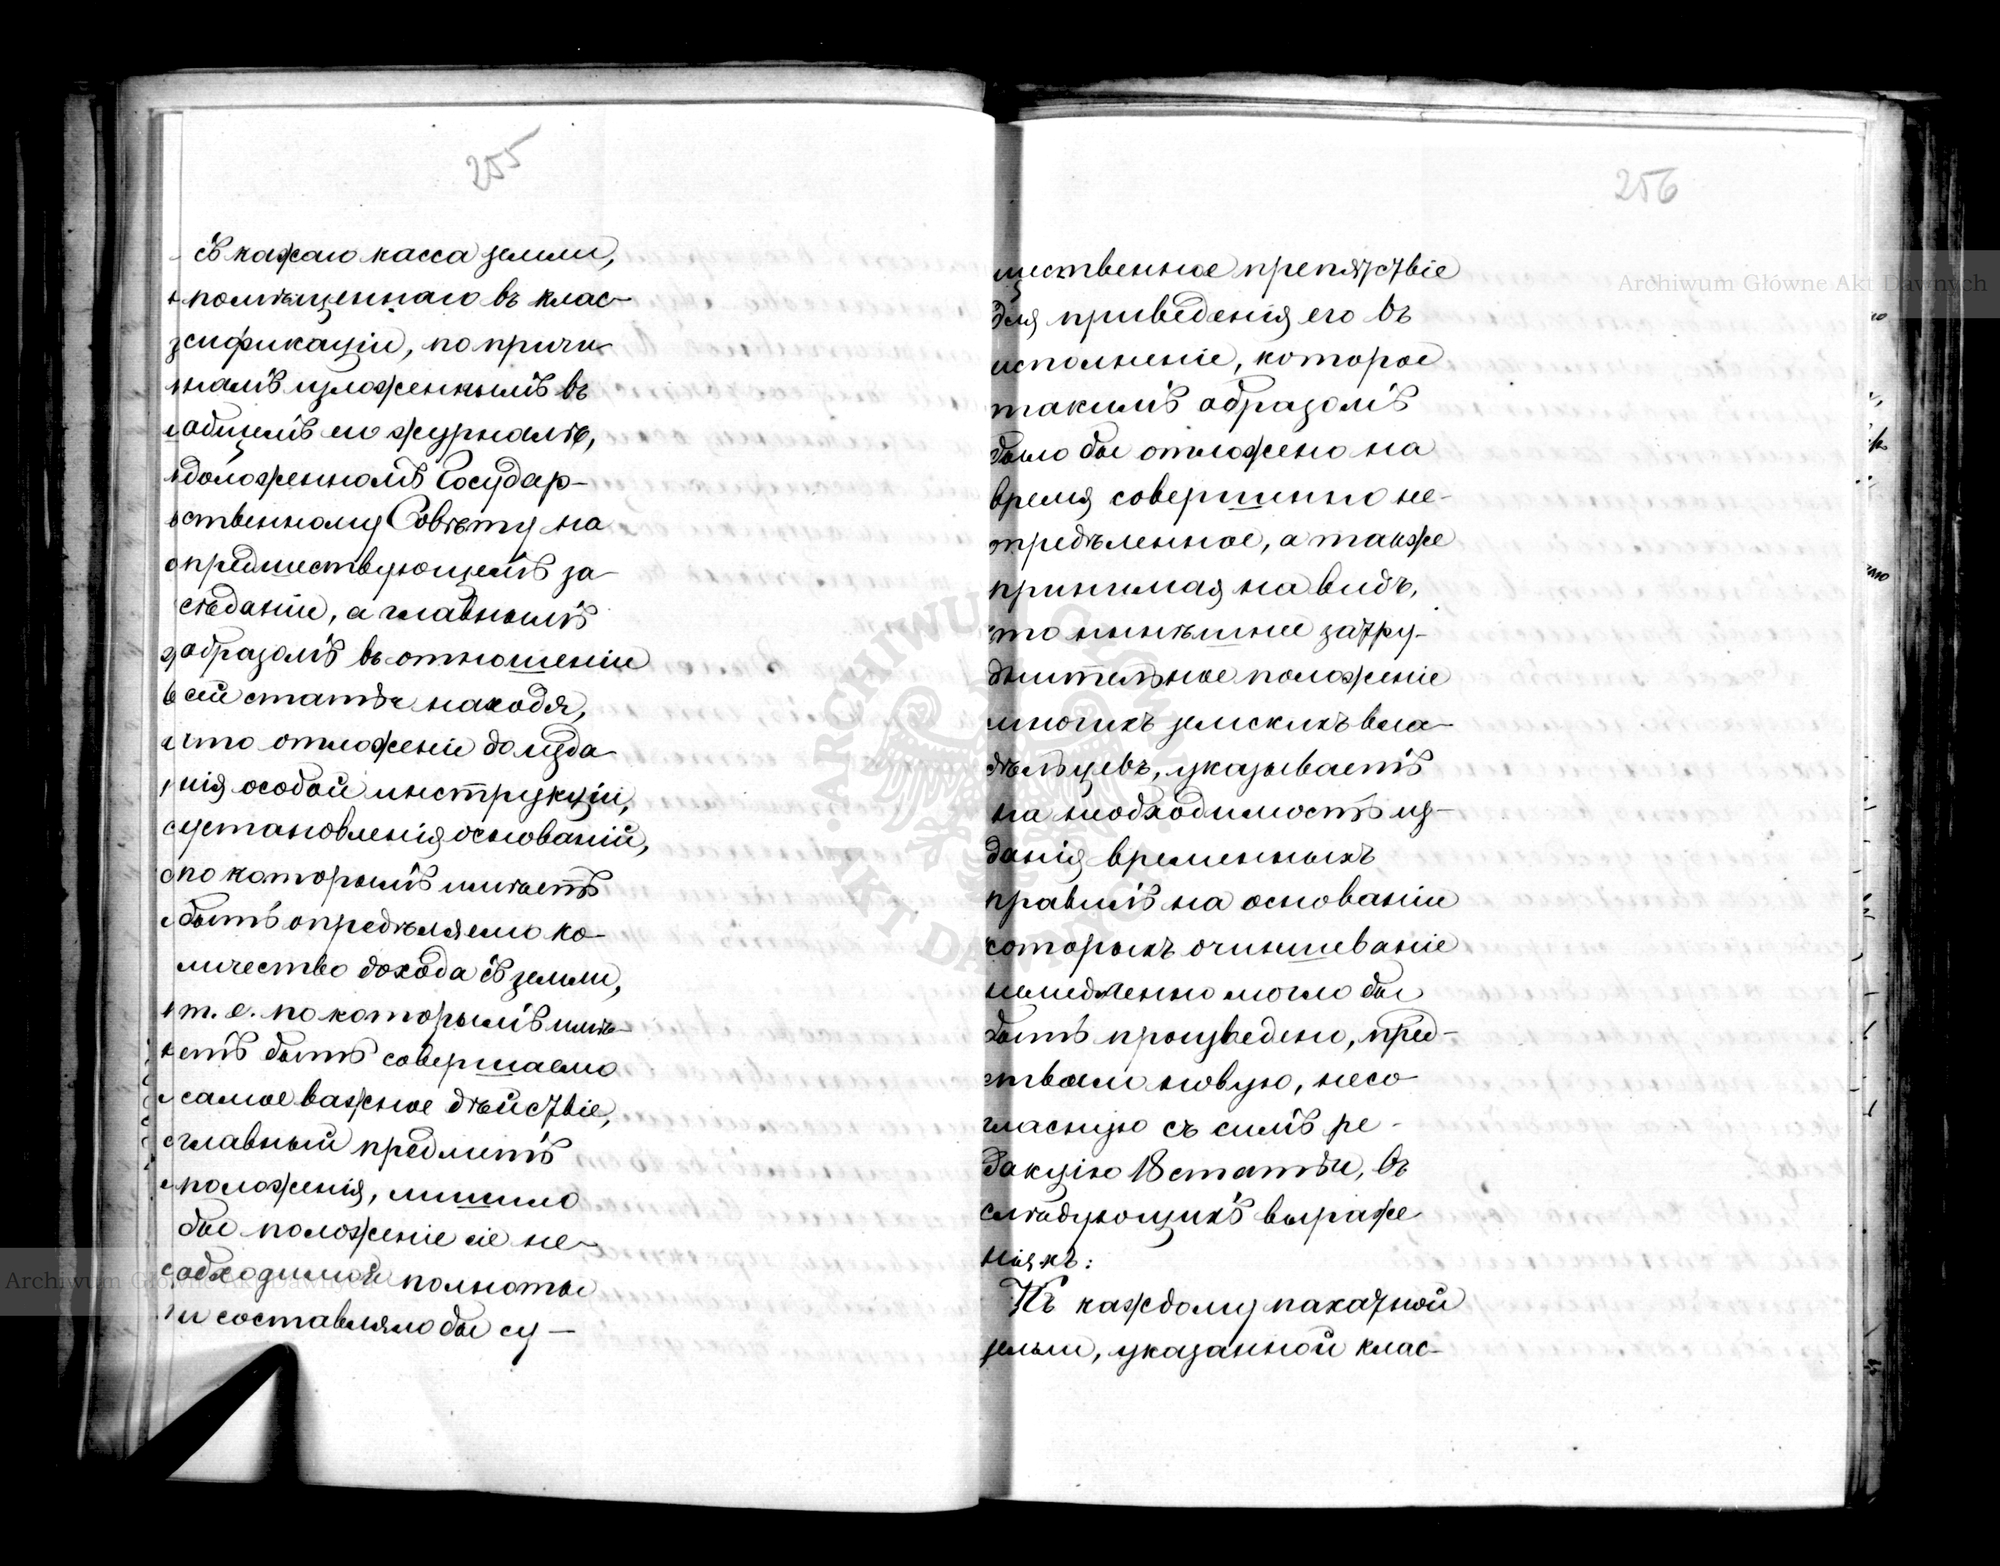 255
съ кажаго касса земли,
помѣщеннаго въ клас-
сификаціи, по причи-
намъ изложеннымъ въ
общемъ ею журналѣ,
доложенномъ Государ-
ственному Совѣту на
предшествующемъ за-
сѣданіи, а главнымъ
образомъ въ отношеніи
сей статьи находя,
что отложеніе до изда-
нія особой инструкціи,
установленія основаній,
по которымъ имѣетъ
быть опредѣляемо ко-
личество дохода съ земли,
т. е. по которымъ имѣ-
етъ быть совершаемо
самое важное дѣйствіе,
главный предметъ
положенія, лишило
бы положеніе сіе не-
обходимой полноты
и составляло бы су-
256
щественное препятствіе
для приведенія его въ
исполненіе, которое
такимъ образомъ
было бы отложено на
время совершенно не-
опредѣленное, а также
принимая на видъ,
что нынѣшнее затру-
днительное положеніе
многихъ земскихъ вла-
дѣльцевъ, указываетъ
на необходимость из-
данія временныхъ
правилъ на основаніи
которыхъ очиншеваніе
немедленно могло бы
быть произведено, пред-
ставляю новую, несо-
гласную съ симъ ре-
дакцію 18 статьи, въ
слѣдующихъ выраже
ніяхъ:
Къ каждому пахатной
земли, указанной клас-
Archiwum Główne Akt Dawnych
Archiwum Główne Akt Dawnych
ARCHIWUM GŁÓWNE AKT DAWNYCH